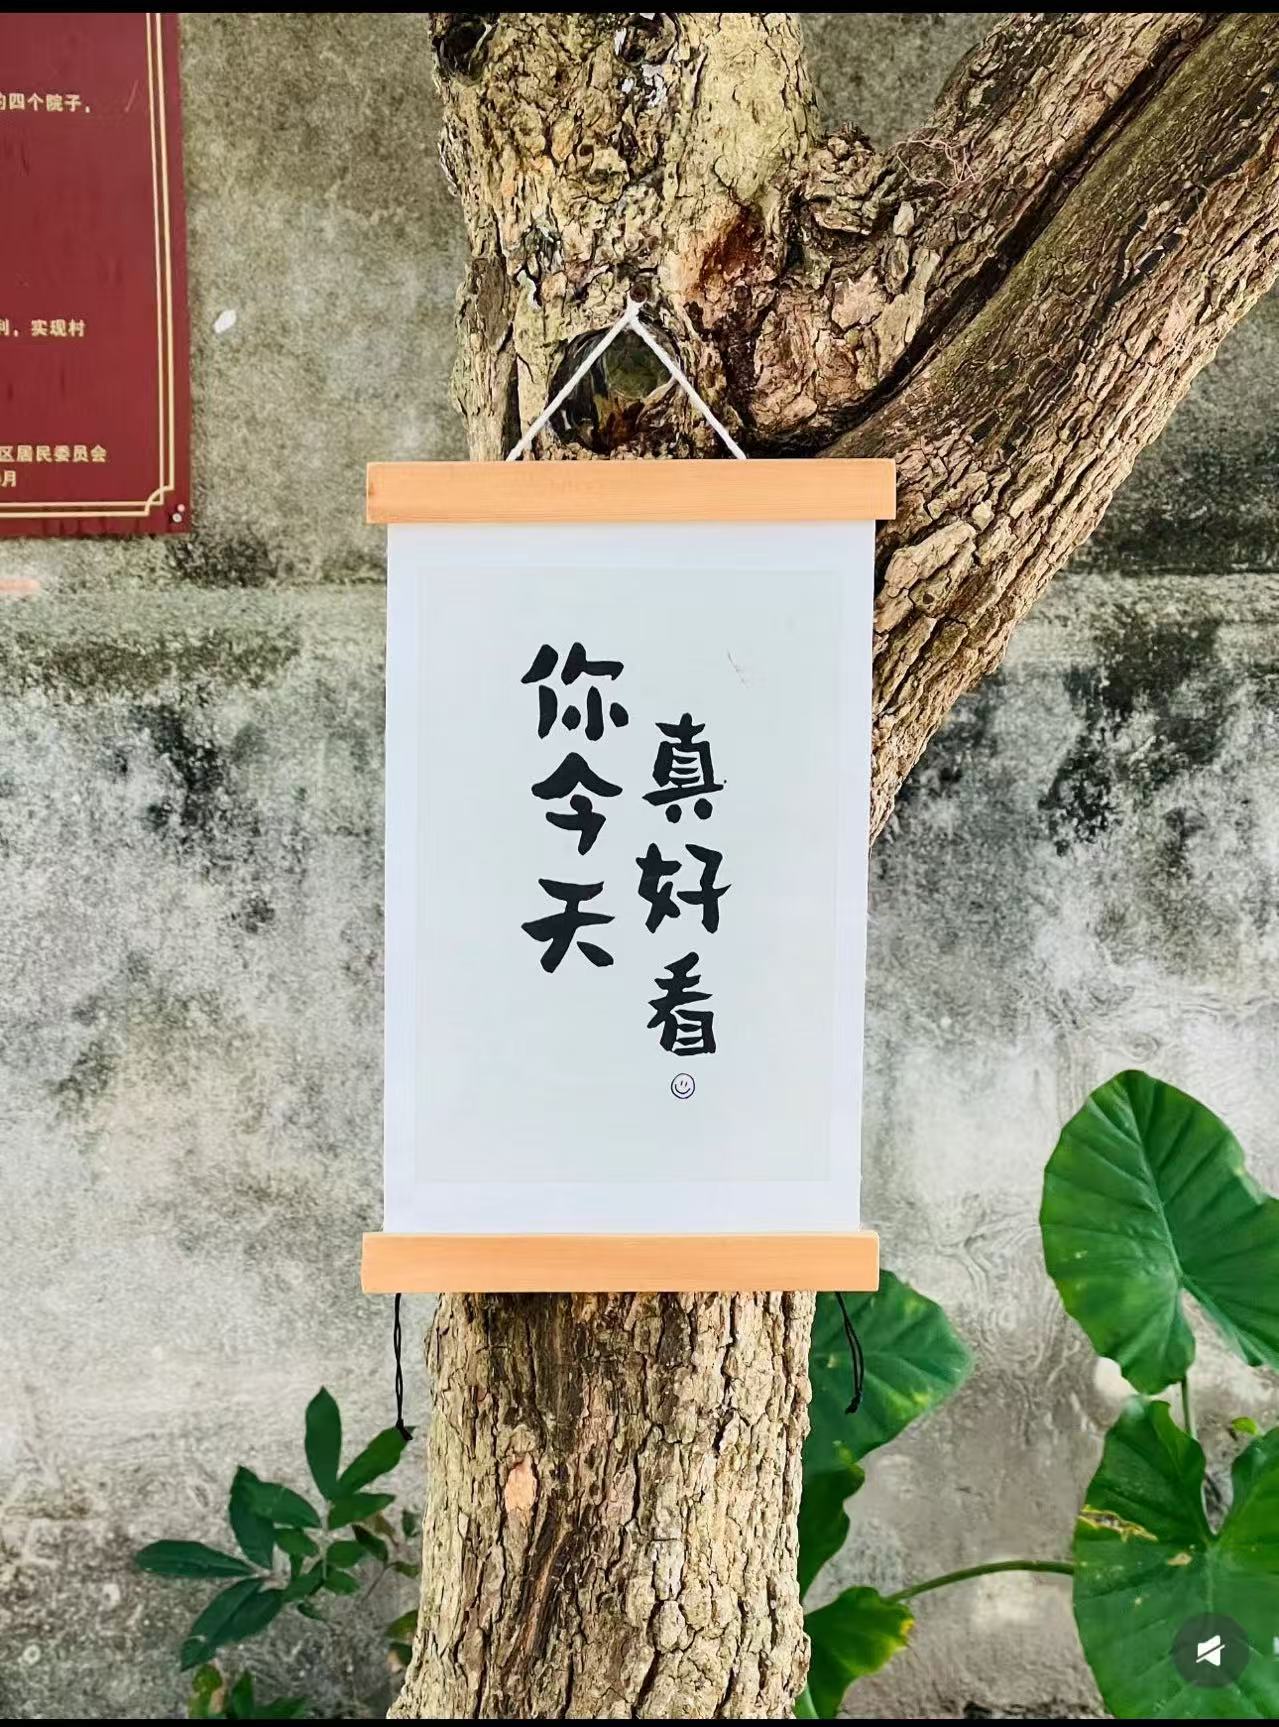 的四个院子，
利，实现村
区居民委员会
月
你今天
真好看